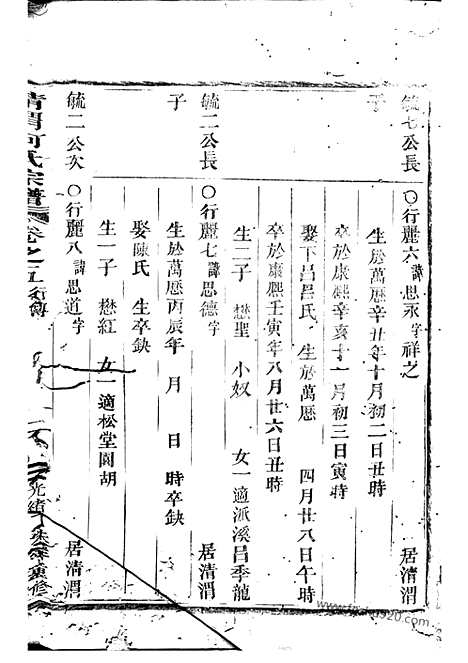 毓七公長子 ○行麗六 諱思永 字祥之 居清渭
生於萬曆辛丑年十月初二日丑時
卒於康熙辛亥十一月初三日寅時
娶下呂呂氏 生於萬曆 四月廿八日午時
卒於康熙壬寅年八月廿六日丑時
生二子 懋聖 小奴 女一適派溪呂季龍
毓二公長子 ○行麗七 諱思德 字 居清渭
生於萬曆丙辰年 月 日 時卒缺
娶陳氏 生卒缺
生一子 懋紅 女一適松堂園胡
毓二公次 ○行麗八 諱思道 字 居清渭
清渭何氏宗譜 卷之五 行傳 光緒 重修